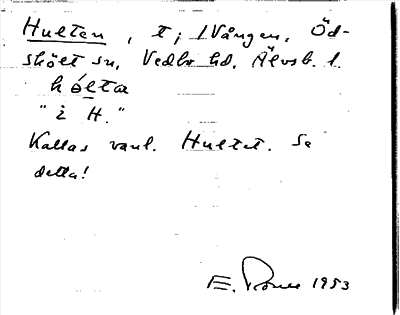 Hulten, t; /Vången, Öd-
skölt sn, Vedbo hd, Älvsb. l.
hólta
"i H."
Kallas vanl. Hultet. Se
detta!
E. 1953